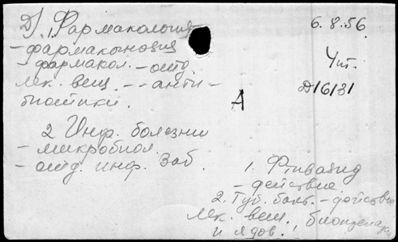 D, Фармакология
- фармакогнозия
фармакол. - отд
лек. вещ. - - анти -
биотики.
2 Инф. болезни
- микробиол.
- отд. инф. заб.
6.8.56.
Чит.
D/6/31
А
1. Фтивазид
- действие
2. Туб. бакт. - действие
лек. вещ.,
и ядов.